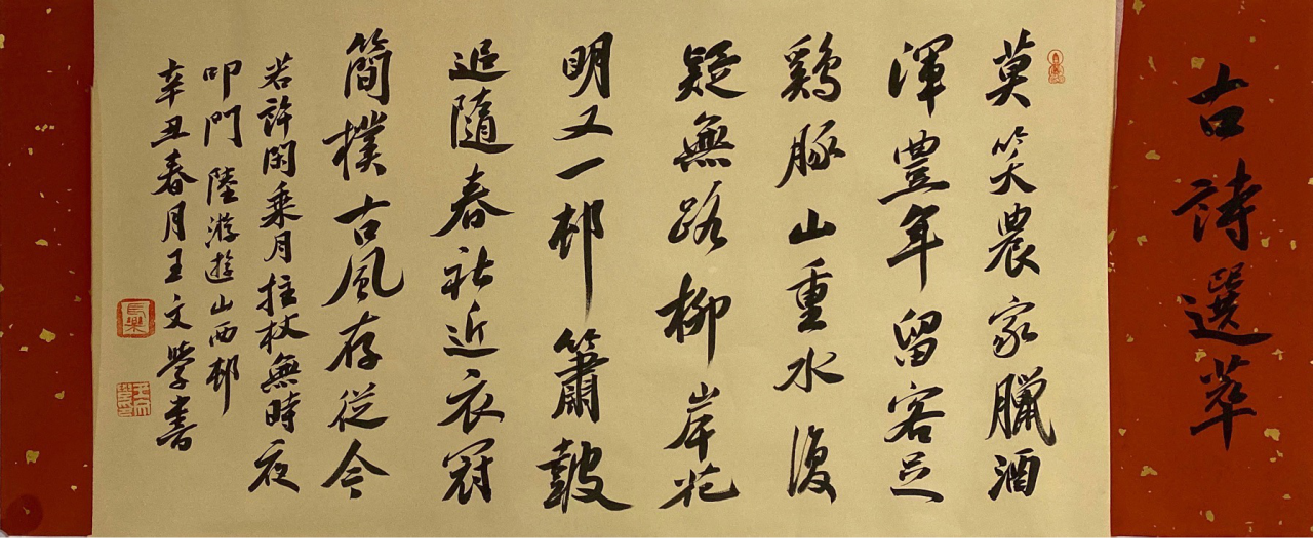 古詩選萃
莫笑農家臘酒
渾豊年留客足
鷄豚山重水復
疑無路柳岸花
明又一邨簫鼓
追隨春社近衣冠
簡樸古風存從今
若許閑乗月拄杖無時夜
叩門 陸游遊山西邨
辛丑春月王文學書
長樂